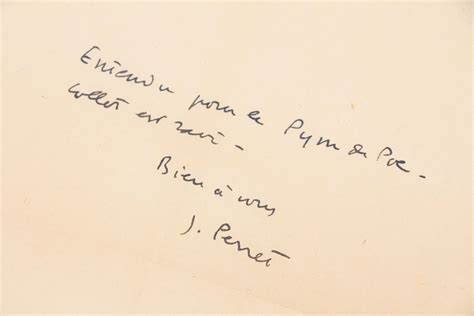 Entendu pour le Pym de Poe -
Collot est ravi -
Bien à vous
J. Perret